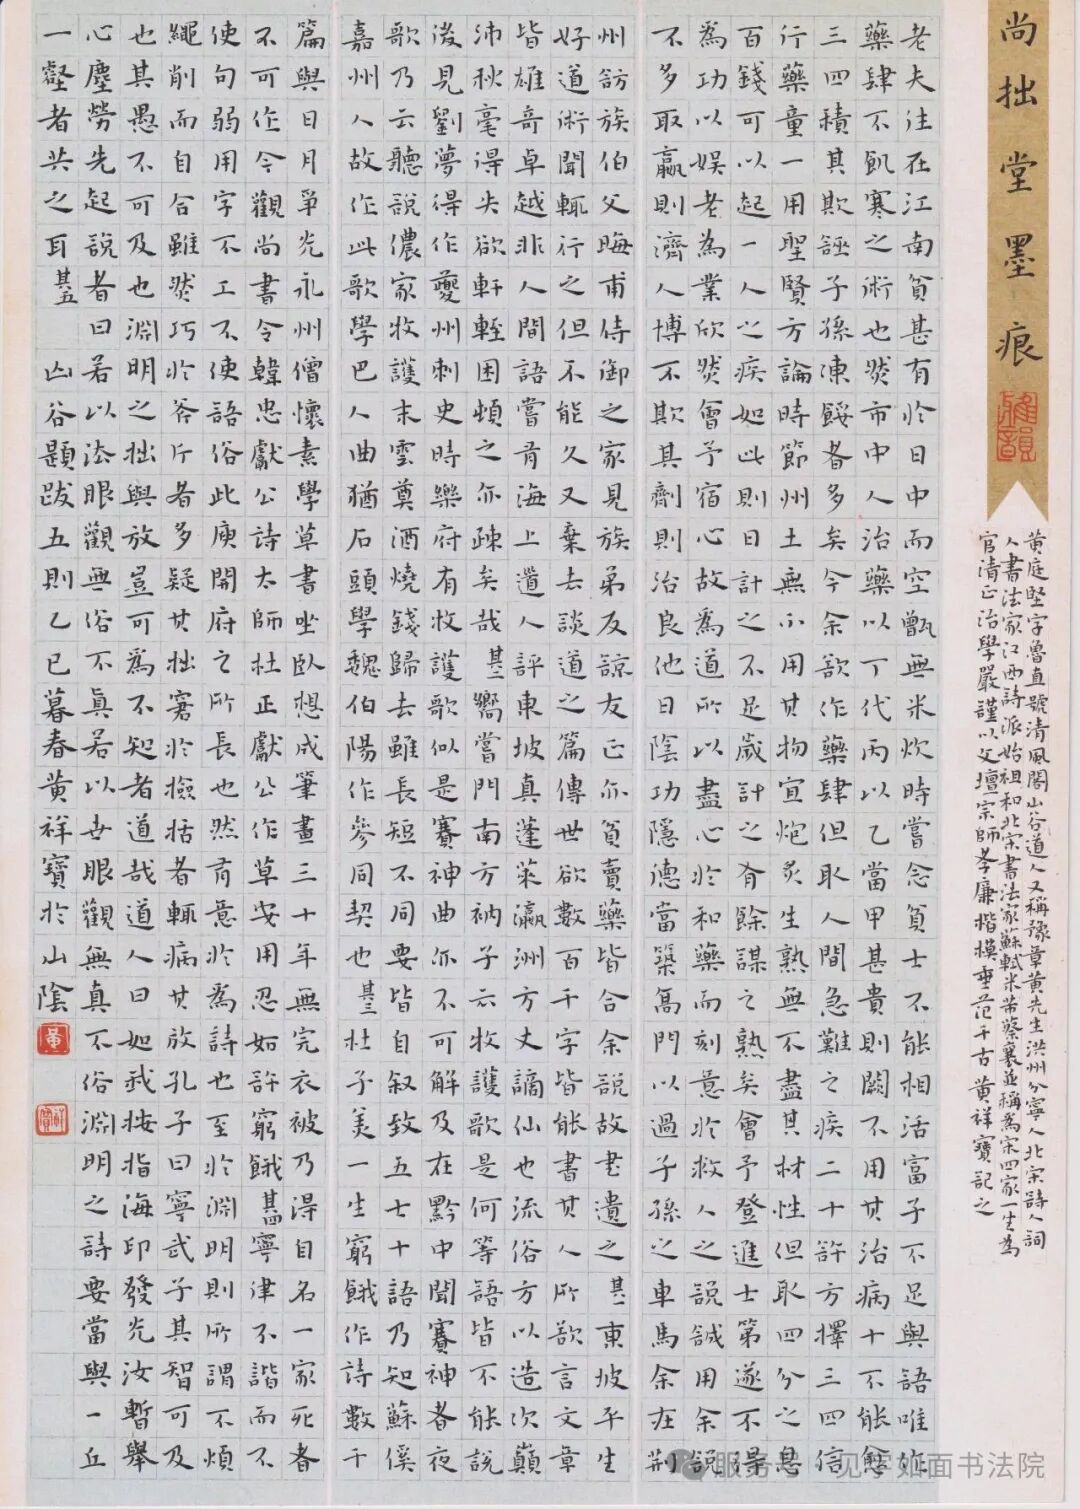 尚拙堂墨痕
雅韻
黃庭堅字魯直號清風閣山谷道人又稱豫章黃先生洪州分寧人北宋詩人詞
人書法家江西詩派始祖和北宋書法家蘇軾米芾蔡襄並稱為宋四家一生為
官清正治學嚴謹以文壇宗師孝廉楷模垂范千古黃祥寶記之
老夫往在江南貧甚有於日中而空甑無米炊時嘗念貧士不能相活富子不足與語唯作
藥肆不飢寒之術也然市中人治藥以丁代丙以乙當甲甚貴則闕不用其治病十不能愈
三四積其欺誣子孫凍餒者多矣今余欲作藥肆但取人間急難之疾二十許方擇三四信
行藥童一用聖賢方論時節州土無不用其物宜炮炙生熟無不盡其材性但取四分之息
百錢可以起一人之疾如此則日計之不足歲計之有餘謀之熟矣會予登進士第遂不得
為功以娛老為業欣然會予宿心故為道所以盡心於和藥而刻意於救人之說誠用余說
不多取贏則濟人博不欺其劑則治良他日陰功隱德當築高門以過子孫之車馬余在荆
州訪族伯父晦甫侍御之家見族弟友諒友正亦貧賣藥皆合余說故書遺之其一東坡平生
好道術聞輒行之但不能久又棄去談道之篇傳世欲數百千字皆能書其人所欲言文章
皆雄奇卓越非人間語嘗有海上道人評東坡真蓬萊瀛洲方丈謫仙也流俗方以造次顛
沛秋毫得失欲軒輊困頓之亦疎矣哉其二嚮嘗門南方衲子云牧護歌是何等語皆不能說
後見劉夢得作夔州刺史時樂府有牧護歌似是賽神曲亦不可解及在黔中聞賽神者夜
歌乃云聽說儂家牧護末云奠酒燒錢歸去雖長短不同要皆自叙致五七十語乃知蘇傒
嘉州人故作此歌學巴人曲猶石頭學魏伯陽作參同契也其三杜子美一生窮餓作詩數千
篇與日月爭光永州僧懷素學草書坐臥想成筆畫三十年無完衣被乃得自名一家死者
不可作今觀尚書令韓忠獻公詩太師杜正獻公作草安用忍如許窮餓其四寧律不諧而不
使句弱用字不工不使語俗此庾開府之所長也然有意於為詩也至於淵明則所謂不煩
繩削而自合雖然巧於斧斤者多疑其拙窘於撿括者輒病其放孔子曰寧武子其智可及
也其愚不可及也淵明之拙與放豈可為不知者道哉道人曰如我按指海印發光汝暫舉
心塵勞先起說者曰若以法眼觀無俗不真若以世眼觀無真不俗淵明之詩要當與一丘
一壑者共之耳其五 山谷題跋五則乙巳暮春黃祥寶於山陰
服务号·见字如面书法院